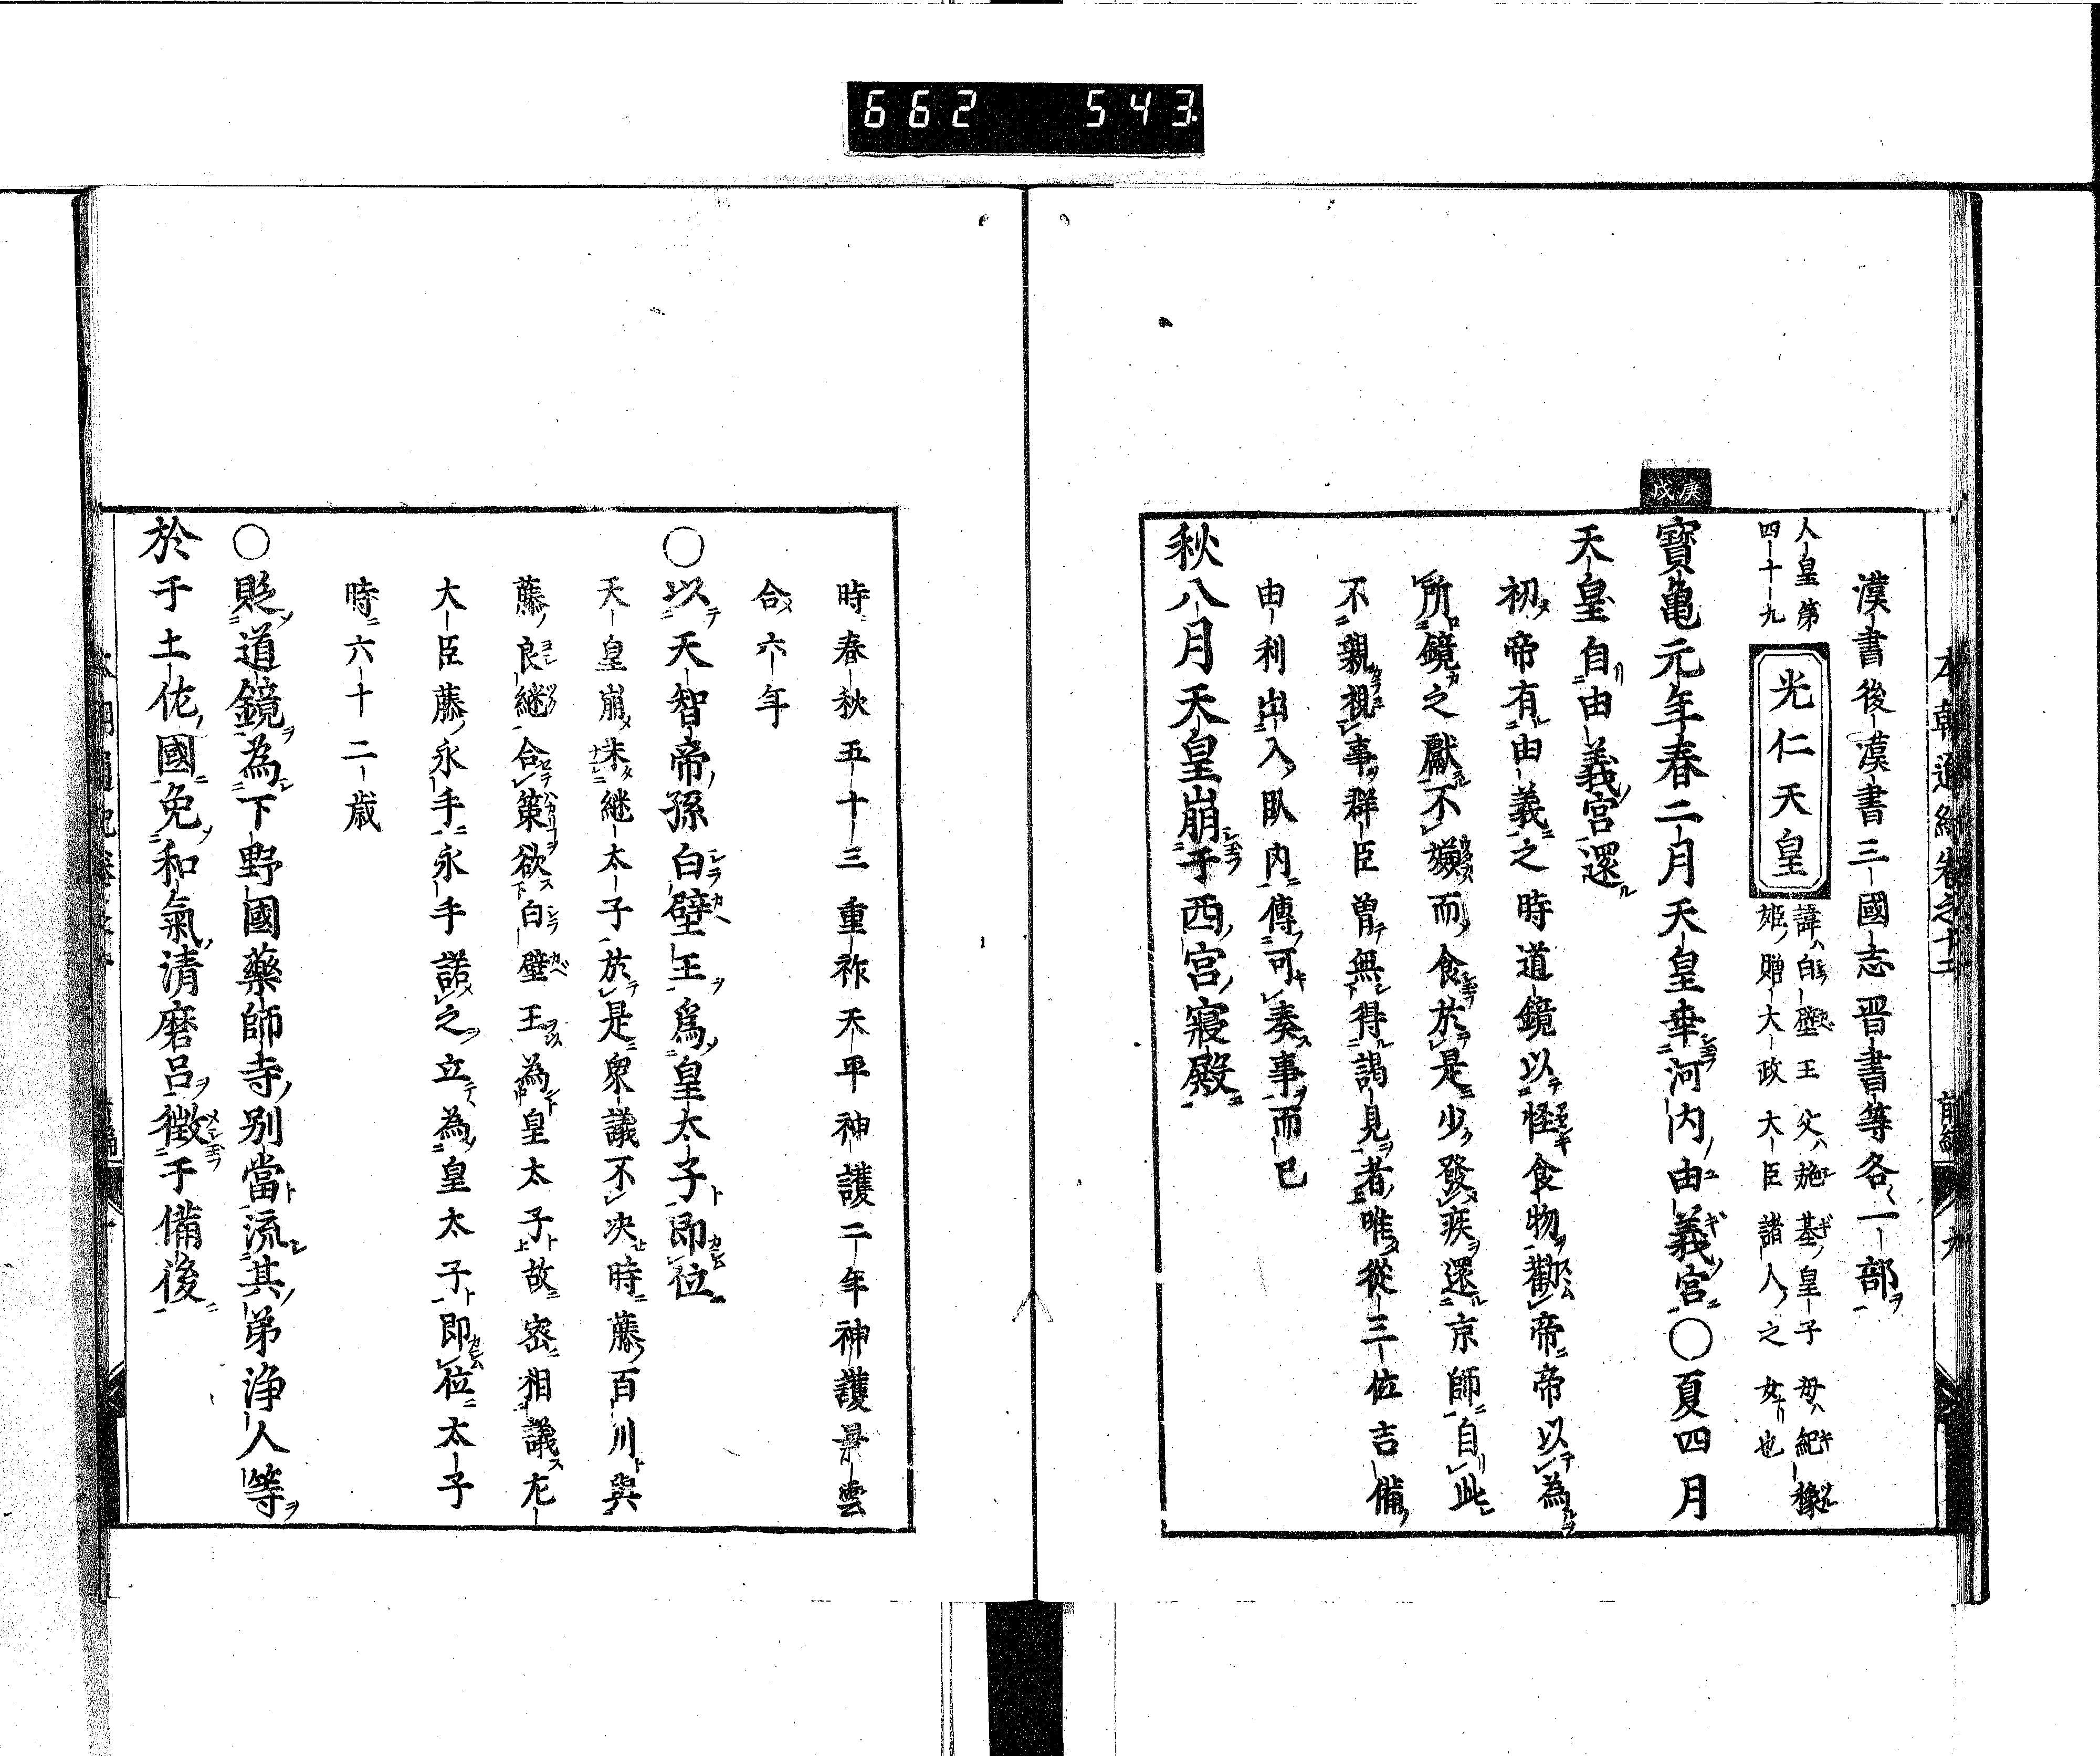 662 543.
本朝通紀卷之十二 前編 九
漢書後漢書三國志晋書等各一部
人皇第
四十九
光仁天皇
諱白壁王父施基皇子母紀橡
姫贈大政大臣諸人之女也
庚戌
寶亀元年春二月天皇幸河内由義宮○夏四月
天皇自由義宮還
初帝有由義之時道鏡以怪食物勸帝帝以為
所鏡之獻不嫌而食於是少發疾還京師自此
不親視事群臣曽無得謁見者唯從三位吉備
由利出入臥内傳可奏事而已
秋八月天皇崩于西宮寢殿
時春秋五十三重祚天平神護二年神護景雲
合六年
○以天智帝孫白壁王爲皇太子即位
天皇崩未継太子於是衆議不决時藤百川與
藤良継合策欲白壁王為皇太子故密相議左
大臣藤永手永手諾之立為皇太子即位太子
時六十二歳
○貶道鏡為下野國藥師寺別當流其弟浄人等
於于土佐國免和氣清磨呂徴于備後